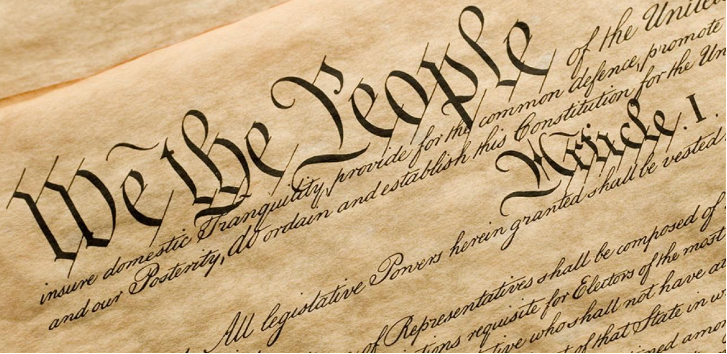 We the People of the United
insure domestic Tranquility, provide for the common defence, promote
and our Posterity, do ordain and establish this Constitution for the Un
Article. I.
All legislative Powers herein granted shall be vested
of Representatives shall be composed of
requisite for Electors of the most
who shall not have at
of that State in w